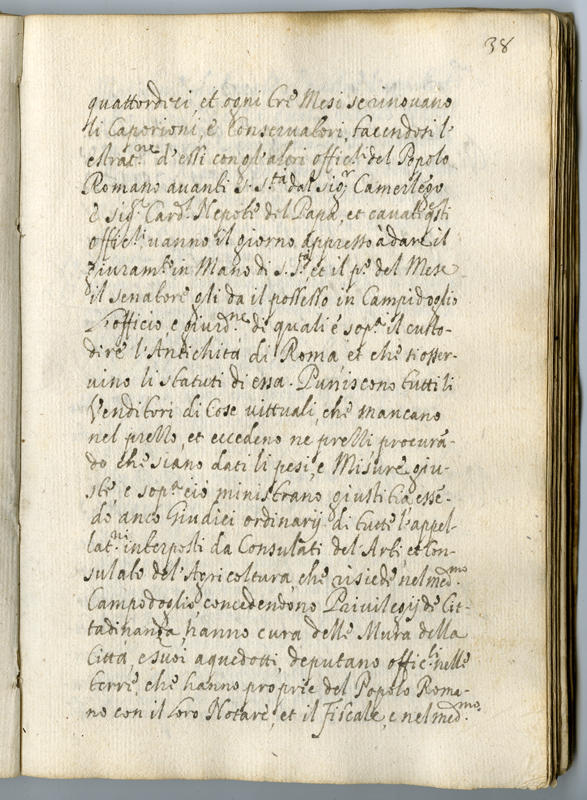 38
quattordici, et ogni tre Mesi se rinovano
li Caporioni, e Conservatori, facendosi l'
estrat.ne d'essi con gl'altri offic.li del Popolo
Romano avanti S. S.tà dal Sig.r Camerlego
e Sig.r Card.l Nepote del Papa, et cavati q.sti
offic.li, vanno il giorno appresso à dare il
giuram.to in Mano di S. S.tà et il p.o del Mese
il senatore gli da il possesso in Campidoglio
L'officio, e giurd.ne di quali é sop.a il custo-
dire l'Antichità di Roma et che si osser-
vino li statuti di essa. Puniscono tutti li
Venditori di Cose vittuali, che mancano
nel prezzo, et eccedeno ne prezzi procurã-
do che siano dati li pesi, e Misure giu-
ste, e sop.a ciò ministrano giustitia essẽ-
do anco Giudici ordinarij di tutte l'appel-
lat.ni interposti da Consulati del'Arti, et Con-
sulato del'Agricoltura, che risiede nel med.mo
Campodoglio, concedendono Privilegij de Cit-
tadinanza, hanno cura delle Mura della
Citta, e suoi aquedotti, deputano offic.li nelle
terre, che hanno proprie del Popolo Roma-
no con il loro Notare, et il fiscale, e nel med.mo